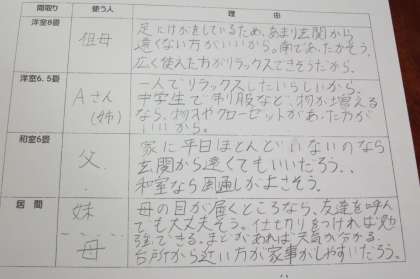 間取り 使う人 理由
洋室8畳 祖母
足にけがをしているため、あまり玄関から
遠くない方がいいから。南であたたかそう。
広く使えた方がリラックスできそうだから。
洋室6.5畳 Aさん(姉)
一人でリラックスしたいらしいから。
中学生で制服など、物が増える
なら、物おやクローゼットがあった方が
いいから。
和室6畳 父
家に平日ほとんどいないのなら
玄関から遠くてもいいだろう。
和室なら風通しがよさそう。
居間 妹 母
母の目が届くところなら、友達を呼ん
でも大丈夫そう。イすをつければ勉
強できる。まどがあれば天気が分かる。
台所から近い方が家事がしやすいだろう。